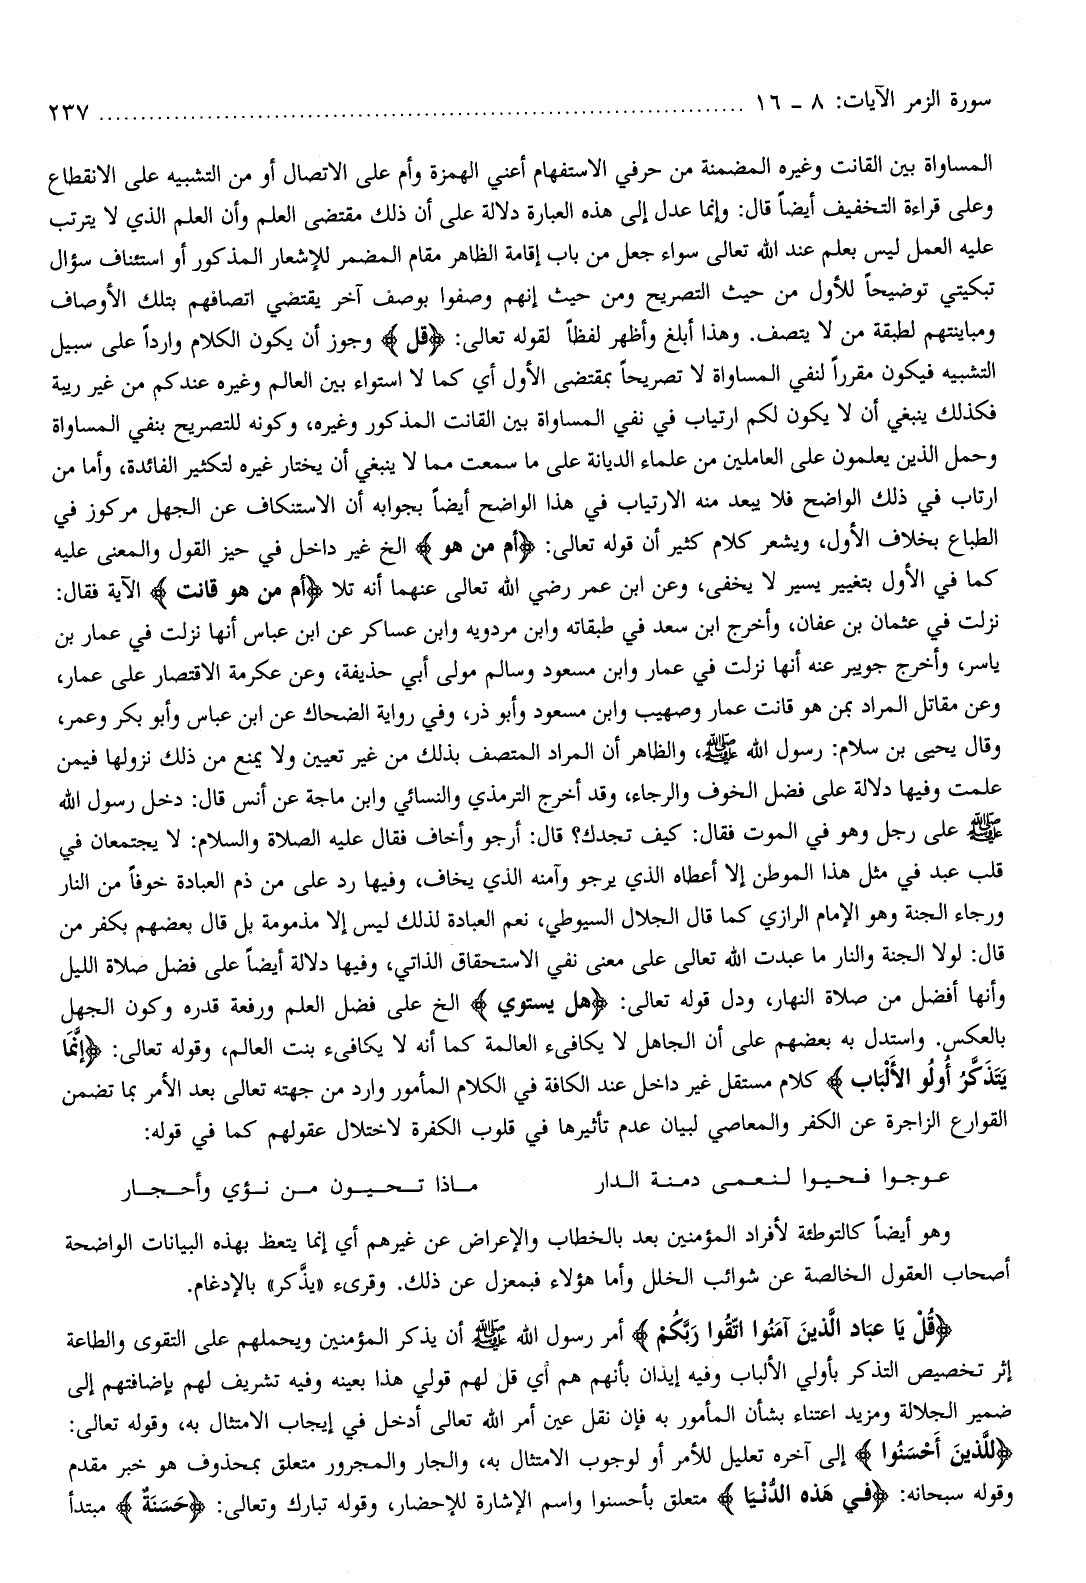 سورة الزمر الآيات: ٨ ـ ١٦ ................................................................................ ٢٣٧
المساواة بين القانت وغيره المضمنة من حرفي الاستفهام أعني الهمزة وأم على الاتصال أو من التشبيه على الانقطاع
وعلى قراءة التخفيف أيضاً قال: وإنما عدل إلى هذه العبارة دلالة على أن ذلك مقتضى العلم وأن العلم الذي لا يترتب
عليه العمل ليس بعلم عند الله تعالى سواء جعل من باب إقامة الظاهر مقام المضمر للإشعار المذكور أو استئناف سؤال
تبكيتي توضيحاً للأول من حيث التصريح ومن حيث إنهم وصفوا بوصف آخر يقتضي اتصافهم بتلك الأوصاف
ومباينتهم لطبقة من لا يتصف. وهذا أبلغ وأظهر لفظاً لقوله تعالى: ﴿قل﴾ وجوز أن يكون الكلام وارداً على سبيل
التشبيه فيكون مقرراً لنفي المساواة لا تصريحاً بمقتضى الأول أي كما لا استواء بين العالم وغيره عندكم من غير ريبة
فكذلك ينبغي أن لا يكون لكم ارتياب في نفي المساواة بين القانت المذكور وغيره، وكونه للتصريح بنفي المساواة
وحمل الذين يعلمون على العاملين من علماء الديانة على ما سمعت مما لا ينبغي أن يختار غيره لتكثير الفائدة، وأما من
ارتاب في ذلك الواضح فلا يبعد منه الارتياب في هذا الواضح أيضاً بجوابه أن الاستنكاف عن الجهل مركوز في
الطباع بخلاف الأول، ويشعر كلام كثير أن قوله تعالى: ﴿أم من هو﴾ الخ غير داخل في حيز القول والمعنى عليه
كما في الأول بتغيير يسير لا يخفى، وعن ابن عمر رضي الله تعالى عنهما أنه تلا ﴿أم من هو قانت﴾ الآية فقال:
نزلت في عثمان بن عفان، وأخرج ابن سعد في طبقاته وابن مردويه وابن عساكر عن ابن عباس أنها نزلت في عمار بن
ياسر، وأخرج جويبر عنه أنها نزلت في عمار وابن مسعود وسالم مولى أبي حذيفة، وعن عكرمة الاقتصار على عمار،
وعن مقاتل المراد بمن هو قانت عمار وصهيب وابن مسعود وأبو ذر، وفي رواية الضحاك عن ابن عباس وأبو بكر وعمر،
وقال يحيى بن سلام: رسول الله ﷺ، والظاهر أن المراد المتصف بذلك من غير تعيين ولا يمنع من ذلك نزولها فيمن
علمت وفيها دلالة على فضل الخوف والرجاء، وقد أخرج الترمذي والنسائي وابن ماجة عن أنس قال: دخل رسول الله
ﷺ على رجل وهو في الموت فقال: كيف تجدك؟ قال: أرجو وأخاف فقال عليه الصلاة والسلام: لا يجتمعان في
قلب عبد في مثل هذا الموطن إلا أعطاه الذي يرجو وآمنه الذي يخاف، وفيها رد على من ذم العبادة خوفاً من النار
ورجاء الجنة وهو الإمام الرازي كما قال الجلال السيوطي، نعم العبادة لذلك ليس إلا مذمومة بل قال بعضهم بكفر من
قال: لولا الجنة والنار ما عبدت الله تعالى على معنى نفي الاستحقاق الذاتي، وفيها دلالة أيضاً على فضل صلاة الليل
وأنها أفضل من صلاة النهار، ودل قوله تعالى: ﴿هل يستوي﴾ الخ على فضل العلم ورفعة قدره وكون الجهل
بالعكس. واستدل به بعضهم على أن الجاهل لا يكافىء العالمة كما أنه لا يكافىء بنت العالم، وقوله تعالى: ﴿إنَّمَا
يَتَذَكَّرُ أُولُو الأَلْبَاب﴾ كلام مستقل غير داخل عند الكافة في الكلام المأمور وارد من جهته تعالى بعد الأمر بما تضمن
القوارع الزاجرة عن الكفر والمعاصي لبيان عدم تأثيرها في قلوب الكفرة لاختلال عقولهم كما في قوله:
عوجوا فحيوا لنعمى دمنة الدار ماذا تحيون من نؤي وأحجار
وهو أيضاً كالتوطئة لأفراد المؤمنين بعد بالخطاب والإعراض عن غيرهم أي إنما يتعظ بهذه البيانات الواضحة
أصحاب العقول الخالصة عن شوائب الخلل وأما هؤلاء فبمعزل عن ذلك. وقرىء «يذَّكر» بالإدغام.
﴿قُلْ يَا عبَاد الَّذينَ آمَنُوا اتَّقُوا رَبَّكُمْ﴾ أمر رسول الله ﷺ أن يذكر المؤمنين ويحملهم على التقوى والطاعة
إثر تخصيص التذكر بأولي الألباب وفيه إيذان بأنهم هم أي قل لهم قولي هذا بعينه وفيه تشريف لهم بإضافتهم إلى
ضمير الجلالة ومزيد اعتناء بشأن المأمور به فإن نقل عين أمر الله تعالى أدخل في إيجاب الامتثال به، وقوله تعالى:
﴿للَّذينَ أَحْسَنُوا﴾ إلى آخره تعليل للأمر أو لوجوب الامتثال به، والجار والمجرور متعلق بمحذوف هو خبر مقدم
وقوله سبحانه: ﴿في هَذه الدُّنْيَا﴾ متعلق بأحسنوا واسم الإشارة للإحضار، وقوله تبارك وتعالى: ﴿حَسَنَةٌ﴾ مبتدأ